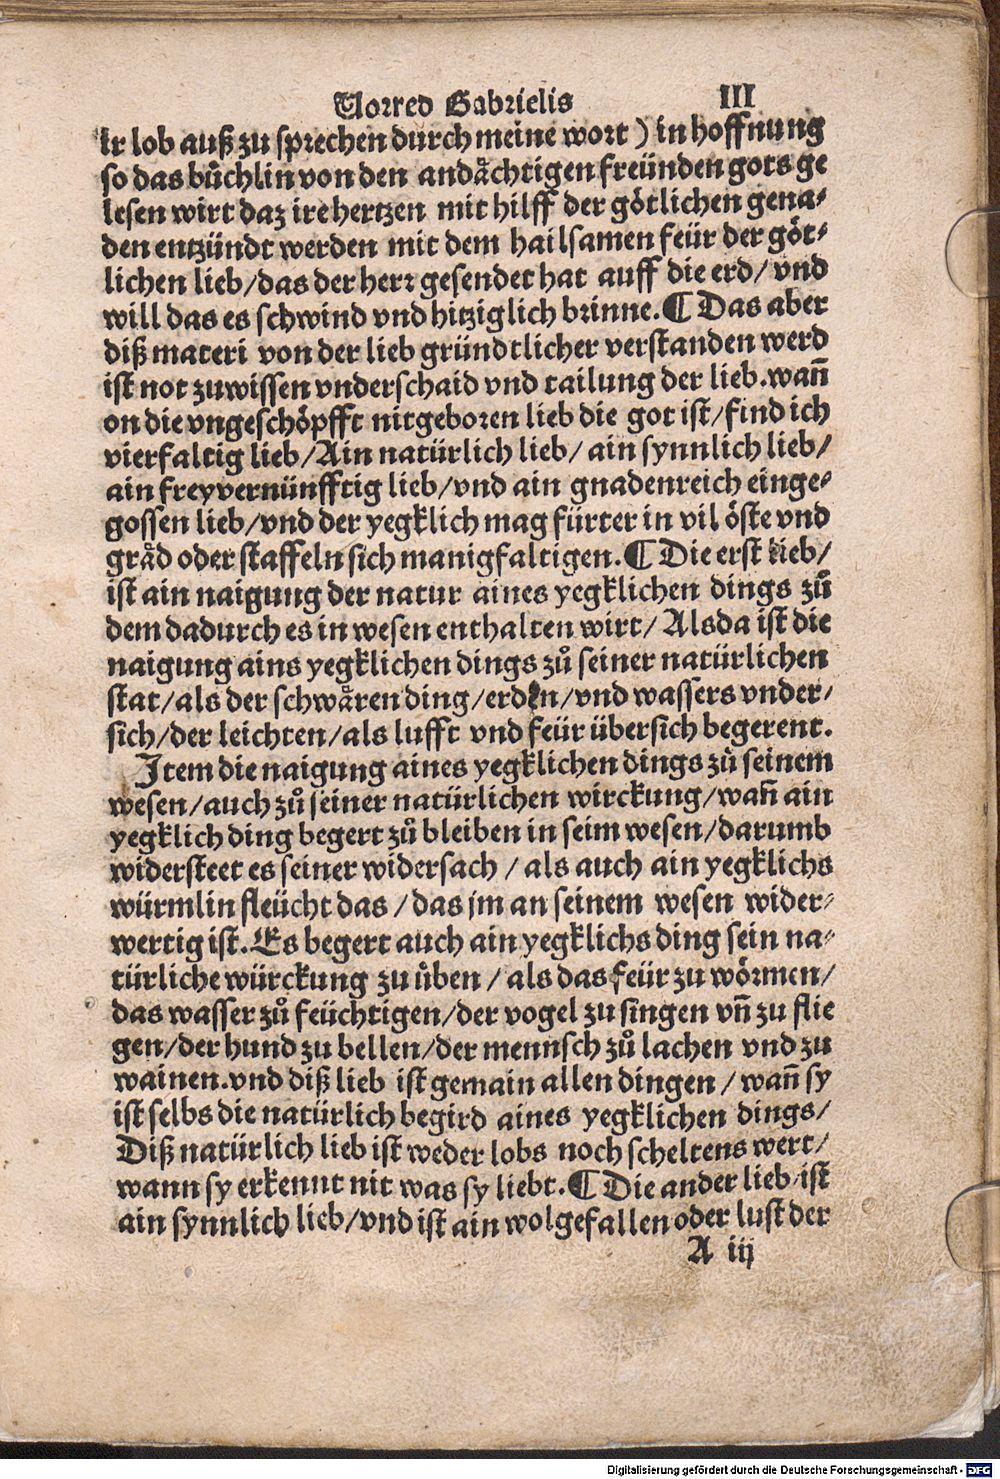 Vorred Gabrielis III
ir lob auß zu sprechen durch meine wort) in hoffnung
so das bůchlin von den andåchtigen freünden gots ge
lesen wirt daz ire hertzen mit hilff der götlichen gena⸗
den entzündt werden mit dem hailsamen feür der göt⸗
lichen lieb/das der herr gesendet hat auff die erd/vnd
will das es schwind vnd hitziglich brinne.¶Das aber
diß materi von der lieb gründtlicher verstanden werd
ist not zuwissen vnderschaid vnd tailung der lieb.wañ
on die vngeschöpfft nitgeboren lieb die got ist/find ich
vierfaltig lieb/Ain natürlich lieb/ain synnlich lieb/
ain freyvernünfftig lieb/vnd ain gnadenreich einge⸗
gossen lieb/vnd der yegklich mag fürter in vil öste vnd
gråd oder staffeln sich manigfaltigen.¶Die erst lieb/
ist ain naigung der natur aines yegklichen dings zů
dem dadurch es in wesen enthalten wirt/Alsda ist die
naigung ains yegklichen dings zů seiner natürlichen
stat/als der schwåren ding/erden/vnd wassers vnder/
sich/der leichten/als lufft vnd feür übersich begerent.
Item die naigung aines yegklichen dings zů seinem
wesen/auch zů seiner natürlichen wirckung/wañ ain
yegklich ding begert zů bleiben in seim wesen/darumb
widersteet es seiner widersach/als auch ain yegklichs
würmlin fleücht das/das jm an seinem wesen wider⸗
wertig ist.Es begert auch ain yegklichs ding sein na⸗
türliche würckung zu ůben/als das feür zu wörmen/
das wasser zů feüchtigen/der vogel zu singen vñ zu flie
gen/der hund zu bellen/der mennsch zů lachen vnd zu
wainen.vnd diß lieb ist gemain allen dingen/wañ sy
ist selbs die natürlich begird aines yegklichen dings/
Diß natürlich lieb ist weder lobs noch scheltens wert/
wann sy erkennt nit was sy liebt.¶Die ander lieb ist
ain synnlich lieb/vnd ist ain wolgefallen oder lust der
A iij
Digitalisierung gefördert durch die Deutsche Forschungsgemeinschaft - DFG